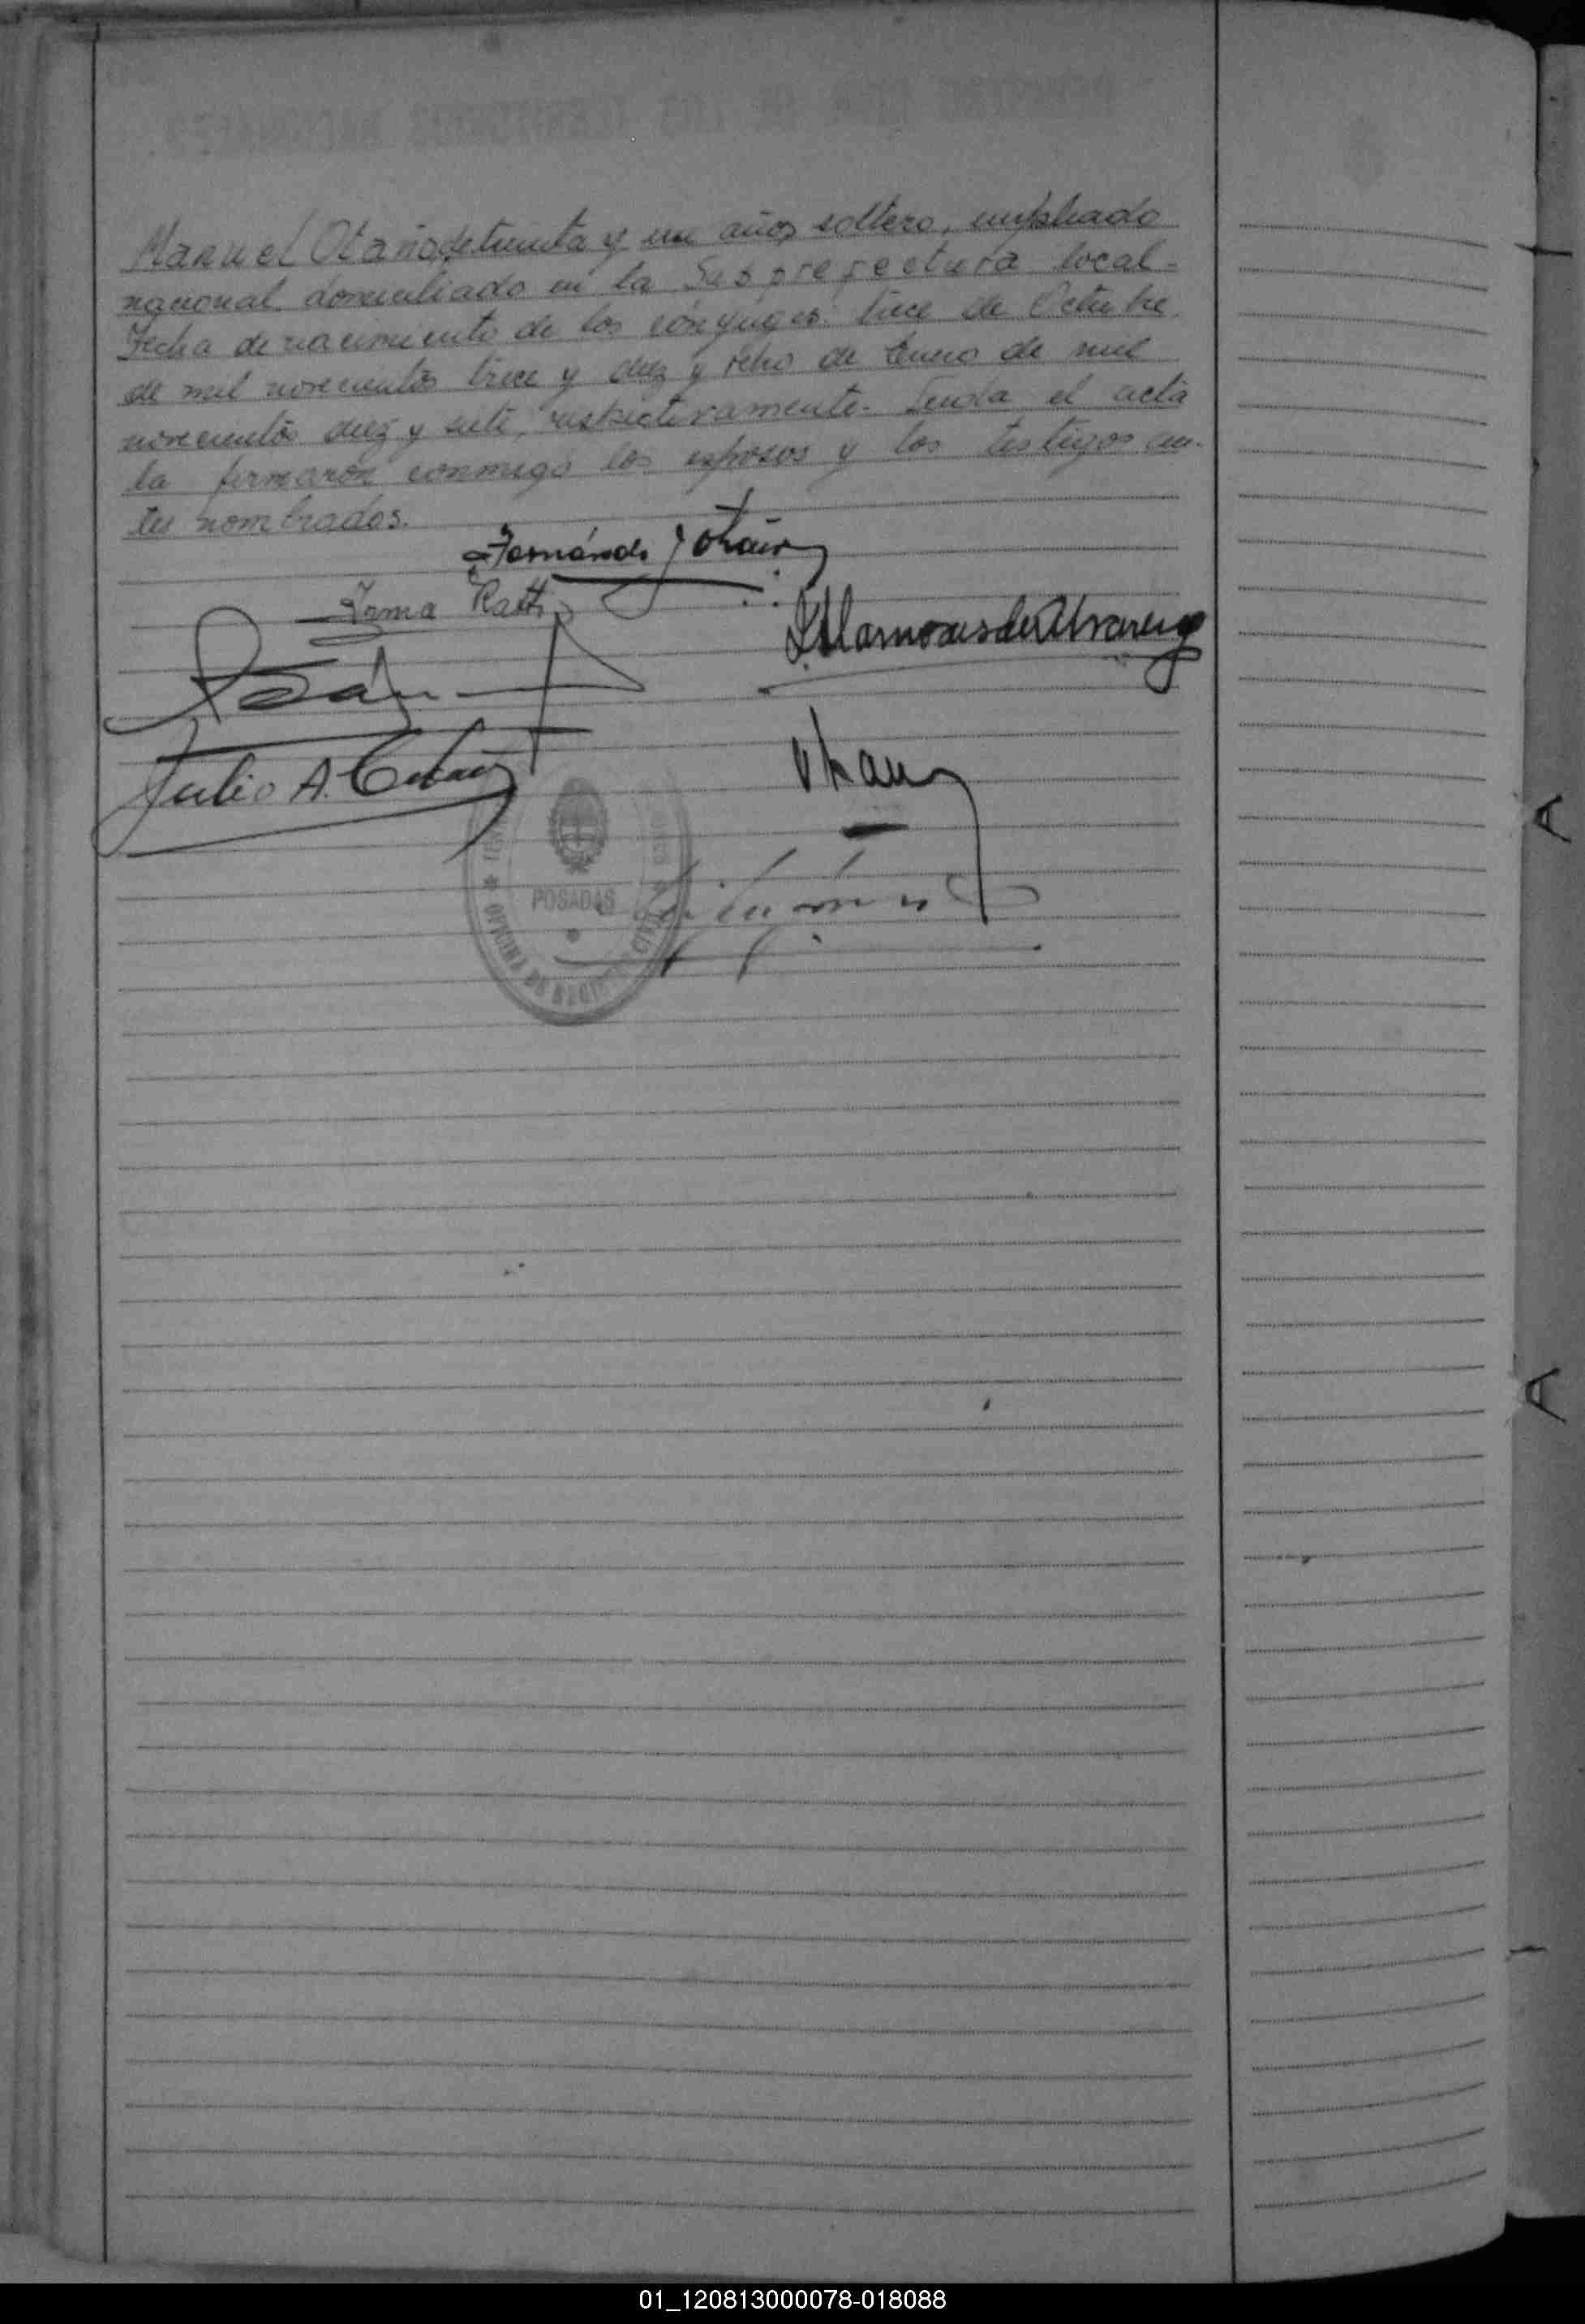 Manuel Otaño, de treinta y un años, soltero, empleado
nacional, domiciliado en la Subprefectura local-
Fecha de nacimiento de los cónyuges: trece de Octubre
de mil novecientos trece y diez y ocho de Enero de mil
novecientos diez y siete, respectivamente. Leida el acta
la firmaron conmigo los esposos y los testigos an-
tes nombrados.
Fernando Otaño
Irma Ratti
Llamosas de Alvarenga
Julio A. Otaño
POSADAS
OFICINA DE REGISTRO CIVIL
01_120813000078-018088